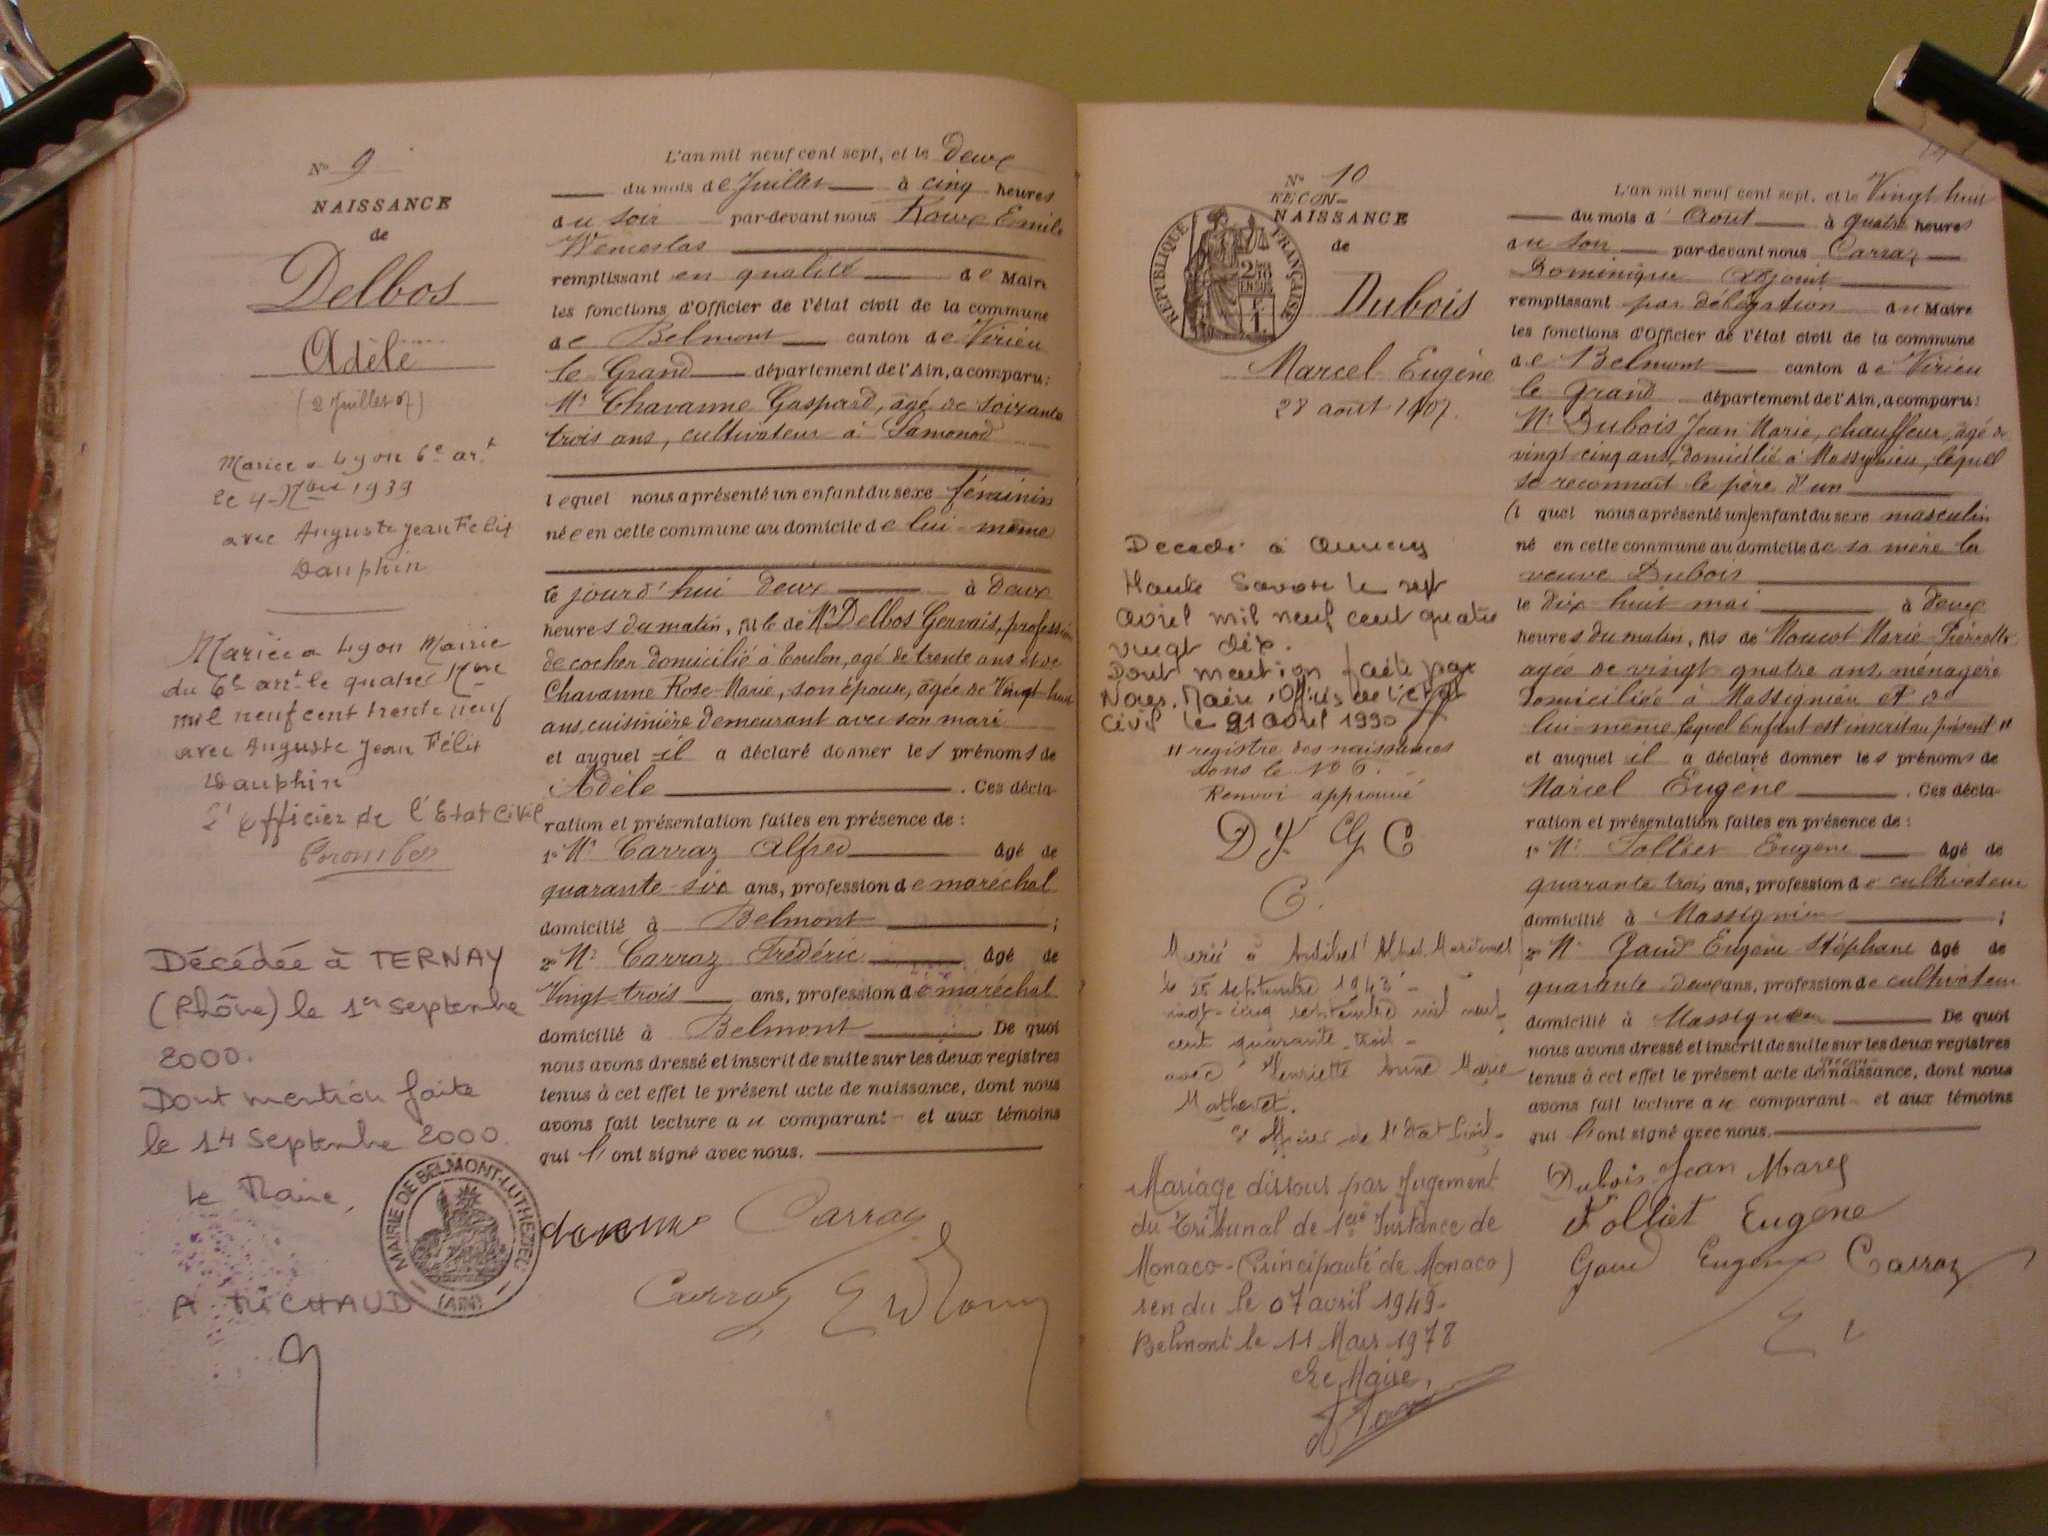 N° 9
NAISSANCE
de
Delbos
Adèle
(2 Juillet 07)
Mariée à Lyon 6e art
le 4 Xbre 1939
avec Auguste Jean Félix
Dauphin
Mariée à Lyon Mairie
du 6e art le quatre Xbre
mil neuf cent trente neuf
avec Auguste Jean Félix
Dauphin
L'Officier de l'Etat Civil
Décédée à TERNAY
(Rhône) le 1er Septembre
2000.
Dont mention faite
le 14 Septembre 2000.
Le Maire,
A. MICHAUD
MAIRIE DE BELMONT-LUTHEZIEU
(AIN)
L'an mil neuf cent sept, et le deux
du mois de Juillet à cinq heures
du soir par-devant nous Roux Emile
Wenceslas
remplissant en qualité de Maire
les fonctions d'Officier de l'état civil de la commune
de Belmont canton de Virieu
le Grand département de l'Ain, a comparu:
Mr Chavanne Gaspard, agé de soixante
trois ans, cultivateur à Samonod
lequel nous a présenté un enfant du sexe féminin
née en cette commune au domicile de lui-même
le jourd'hui deux à deux
heures du matin, fille de Mr Delbos Gervais, profession
de cocher domicilié à Toulon, agé de trente ans et de
Chavanne Rose Marie, son épouse, agée de Vingt-huit
ans, cuisinière demeurant avec son mari
et auquel il a déclaré donner les prénoms de
Adèle . Ces décla-
ration et présentation faites en présence de :
1° Mr Carraz Alfred âgé de
quarante-six ans, profession de maréchal
domicilié à Belmont ;
2° Mr Carraz Frédéric âgé de
Vingt-trois ans, profession de maréchal
domicilié à Belmont . De quoi
nous avons dressé et inscrit de suite sur les deux registres
tenus à cet effet le présent acte de naissance, dont nous
avons fait lecture au comparant et aux témoins
qui l'ont signé avec nous.
Carraz
Carraz
N° 10
RECON-
NAISSANCE
de
REPUBLIQUE FRANÇAISE
Dubois
Marcel Eugène
28 août 1907.
Décédé à Annecy
Haute Savoie le sept
avril mil neuf cent quatre
vingt dix.
Dont mention faite par
Nous, Maire, Officier de l'Etat
Civil le 21 avril 1990
" registre des naissances
sous le N° 6.
Renvoi approuvé
D J. G E
C.
Marié à Antibes Alpes Maritimes
le 25 septembre 1943
vingt-cinq septembre mil neuf
cent quarante-trois
avec Henriette Anne Marie
Mathevet.
L'officier de l'Etat Civil
Mariage dissous par Jugement
du Tribunal de 1ère Instance de
Monaco (Principauté de Monaco)
rendu le 07 avril 1949
Belmont le 11 Mars 1978
Le Maire,
L'an mil neuf cent sept, et le Vingt huit
du mois d'Août à quatre heures
du soir par-devant nous Carraz
Dominique adjoint
remplissant par délégation du Maire
les fonctions d'Officier de l'état civil de la commune
de Belmont canton de Virieu
le Grand département de l'Ain, a comparu:
Mr Dubois Jean Marie, chauffeur, agé de
vingt cinq ans, domicilié à Massignieu, lequel
se reconnait le père d'un
(l quel nous a présenté un) enfant du sexe masculin
né en cette commune au domicile de sa mère la
veuve Dubois
le dix-huit mai à deux
heures du matin, fils de Moucot Marie Pierrette
agée de vingt-quatre ans, ménagère
domiciliée à Massignieu et de
lui-même lequel Enfant est inscrit au présent "
et auquel il a déclaré donner les prénoms de
Marcel Eugène . Ces décla-
ration et présentation faites en présence de :
1° Mr Folliet Eugène âgé de
quarante trois ans, profession de cultivateur
domicilié à Massignieu ;
2° Mr Gaud Eugène Stéphane âgé de
quarante-deux ans, profession de cultivateur
domicilié à Massignieu De quoi
nous avons dressé et inscrit de suite sur les deux registres
tenus à cet effet le présent acte de reconnaissance, dont nous
avons fait lecture au comparant et aux témoins
qui l'ont signé avec nous.
Dubois Jean Marie
Folliet Eugène
Gaud Eugène Carraz